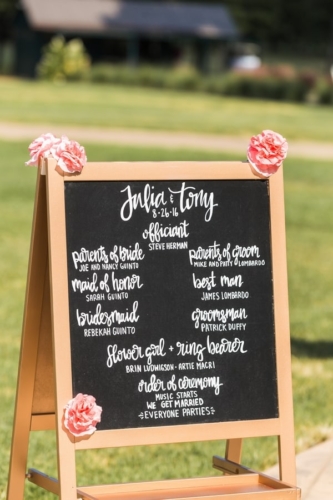 Julia & Tony
8-26-16
officiant
STEVE HERMAN
parents of bride
JOE AND NANCY GUINTO
parents of groom
MIKE AND PATTY LOMBARDO
maid of honor
SARAH GUINTO
best man
JAMES LOMBARDO
bridesmaid
REBEKAH GUINTO
groomsman
PATRICK DUFFY
flower girl + ring bearer
BRIN LUDWIGSON - ARTIE MACRI
order of ceremony
MUSIC STARTS
WE GET MARRIED
-EVERYONE PARTIES-